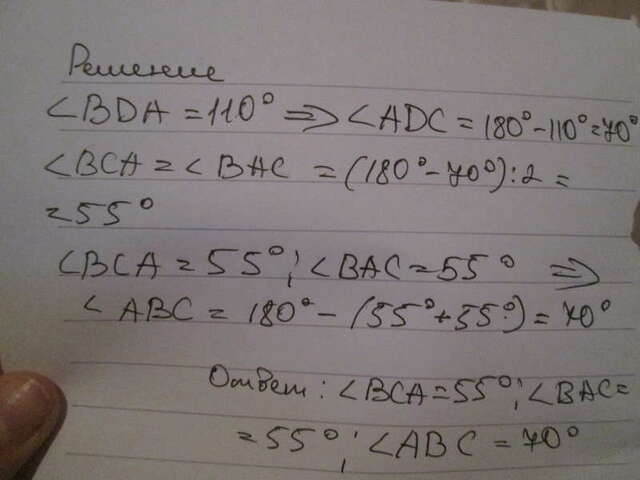 Решение
∠BDA = 110° ⇒ ∠ADC = 180° - 110° = 70°
∠BCA = ∠BAC = (180° - 70°) : 2 =
= 55°
∠BCA = 55°; ∠BAC = 55° ⇒
∠ABC = 180° - (55° + 55°) = 70°
Ответ: ∠BCA = 55°; ∠BAC =
= 55°; ∠ABC = 70°